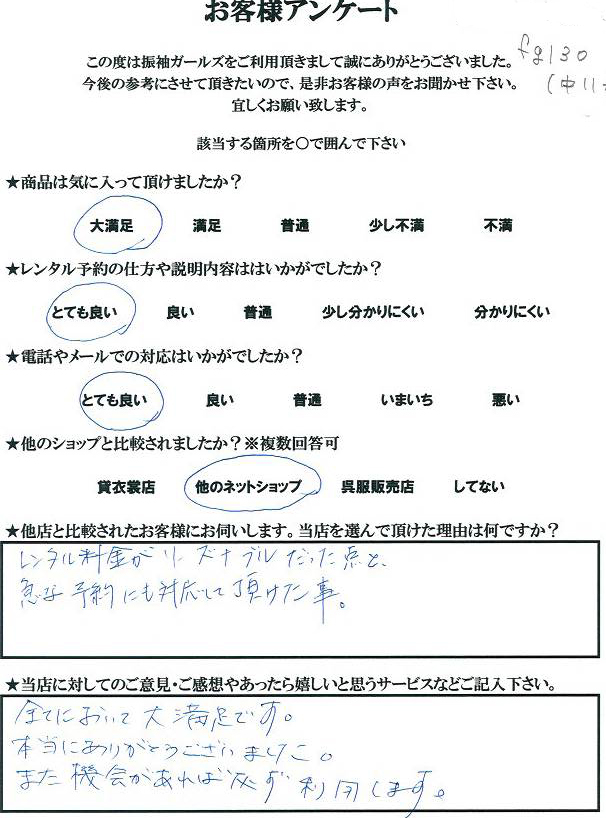 お客様アンケート
fg130
この度は振袖ガールズをご利用頂きまして誠にありがとうございました。
今後の参考にさせて頂きたいので、是非お客様の声をお聞かせ下さい。
宜しくお願い致します。
該当する箇所を○で囲んで下さい
★商品は気に入って頂けましたか？
大満足 満足 普通 少し不満 不満
★レンタル予約の仕方や説明内容ははいかがでしたか？
とても良い 良い 普通 少し分かりにくい 分かりにくい
★電話やメールでの対応はいかがでしたか？
とても良い 良い 普通 いまいち 悪い
★他のショップと比較されましたか？※複数回答可
貸衣裳店 他のネットショップ 呉服販売店 してない
★他店と比較されたお客様にお伺いします。当店を選んで頂けた理由は何ですか？
レンタル料金がリーズナブルだった点と、
急な予約にも対応して頂けた事。
★当店に対してのご意見・ご感想やあったら嬉しいと思うサービスなどご記入下さい。
全てにおいて大満足です。
本当にありがとうございました。
また機会があれば必ず利用します。